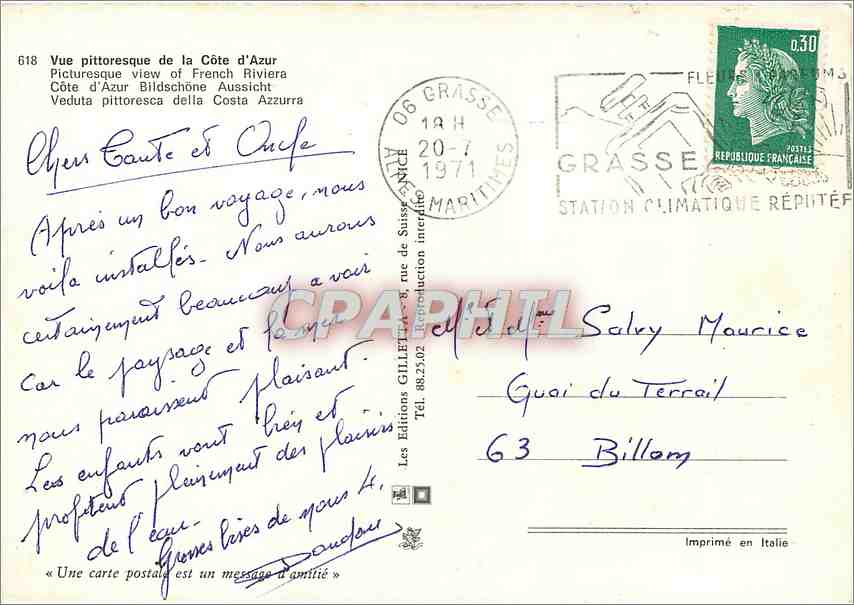 618 Vue pittoresque de la Côte d'Azur
Picturesque view of French Riviera
Côte d'Azur Bildschöne Aussicht
Veduta pittoresca della Costa Azzurra
Chers Tante et Oncle
Après un bon voyage, nous
voila installés - Nous aurons
certainement beaucoup a voir
Car le paysage et la mer
nous paraissent plaisant.
Les enfants vont bien et
profitent pleinement des plaisirs
de l'eau -
Grosses bises de nous 4.
« Une carte postale est un message d'amitié »
Les Editions GILLETTA - 8, rue de Suisse - NICE
Tél. 88.25.02 Reproduction interdite
06 GRASSE
18 H
20-7
1971
ALPES MARITIMES
FLEURS PARFUMS
GRASSE
STATION CLIMATIQUE RÉPUTÉE
0,30
POSTES
REPUBLIQUE FRANÇAISE
CPAPHIL
Mr et Mme Salvy Maurice
Quai du Terrail
63 Billom
Imprimé en Italie